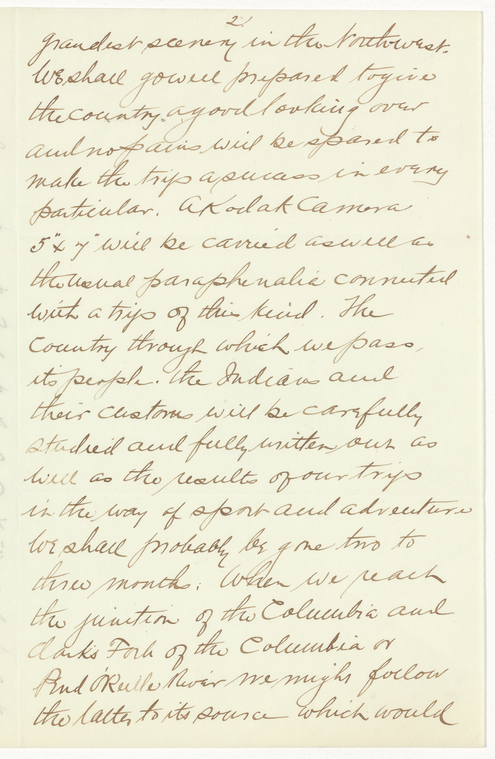 2/
grandest scenery in the Northwest.
We shall go well prepared to give
the country a good looking over
and no pains will be spared to
make the trip a sucess in every
particular. A Kodak Camera
5" x 7" will be carried as well as
the usual paraphenalia connected
with a trip of this kind. The
Country through which we pass,
its people. the Indians and
their customs will be carefully
studied and fully written out as
well as the results of our trip
in the way of sport and adventure
We shall probably be gone two to
three months. When we reach
the junction of the Columbia and
Clarks Fork of the Columbia or
Pend O'Reille River we might follow
the latter to its source which would